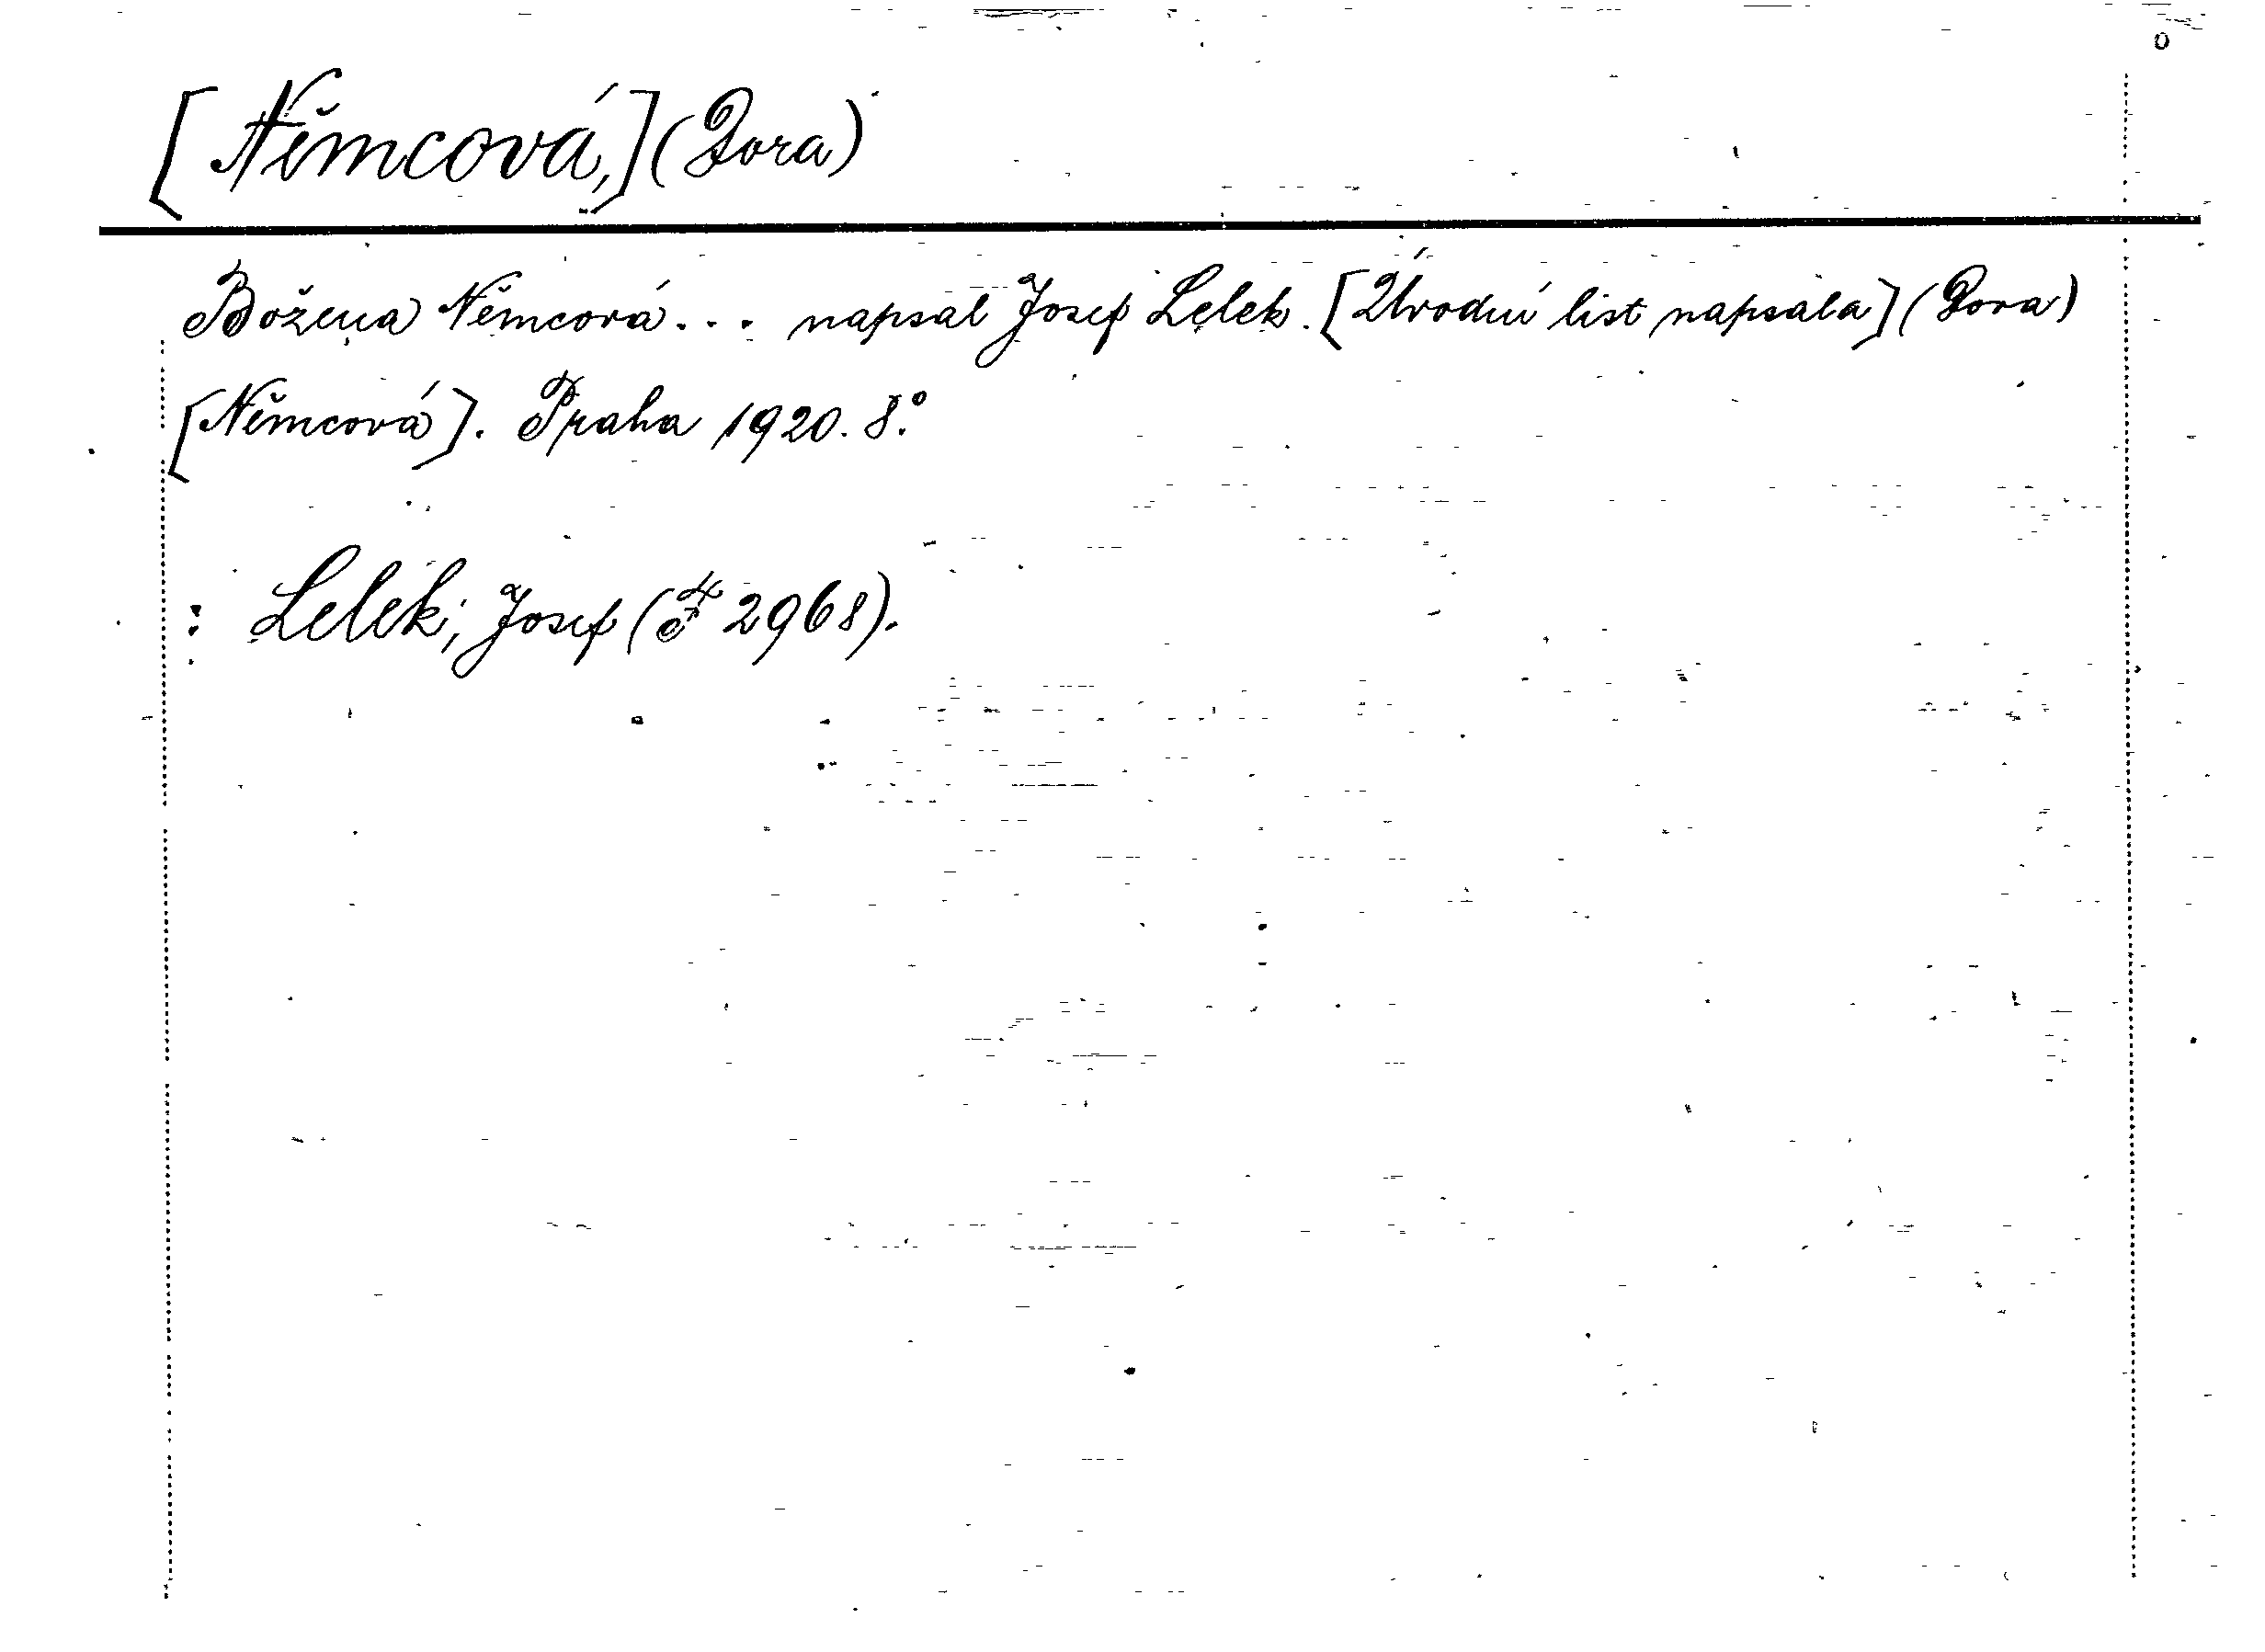 [Němcová,] (Dora)
Božena Němcová... napsal Josef Lelek. [Úvodní list napsala] (Dora)
[Němcová]. Praha 1920. 8.°
: Lelek, Josef (F 2968).